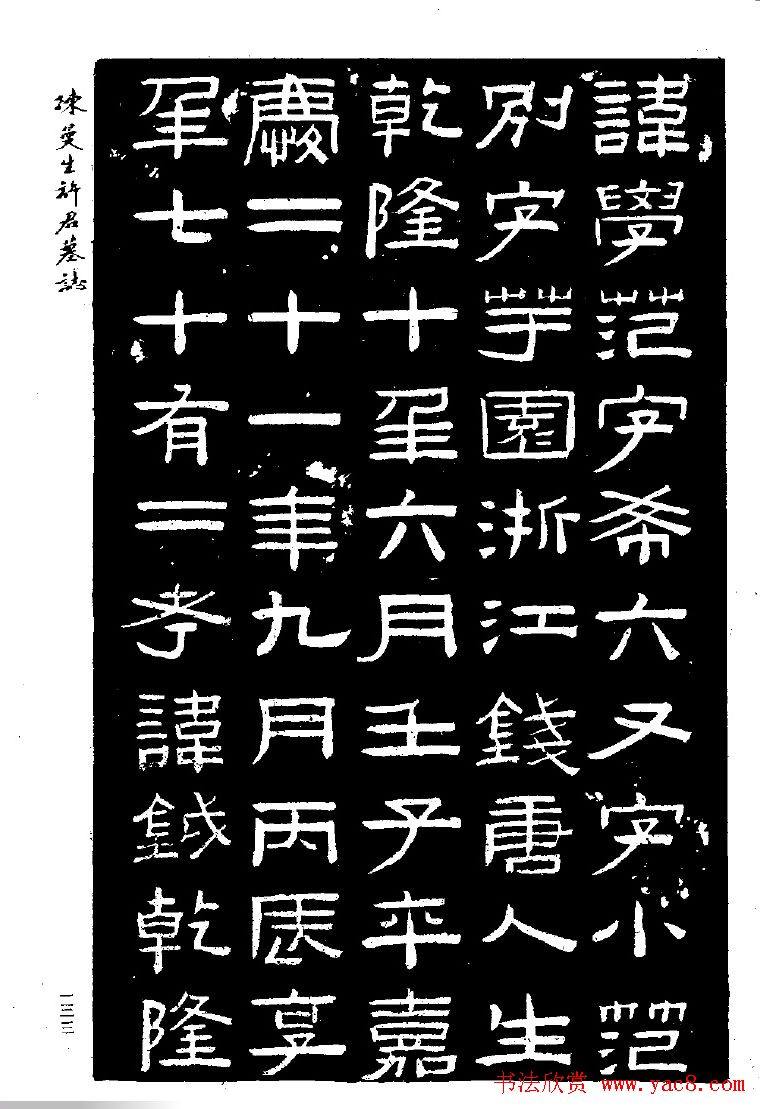 諱學范字希六又字小范
別字芋園浙江錢唐人生
乾隆十年六月壬子卒嘉
慶二十一年九月丙辰享
年七十有二考諱鉞乾隆
陳曼生許君墓誌
一三三
书法欣赏 www.yac8.com